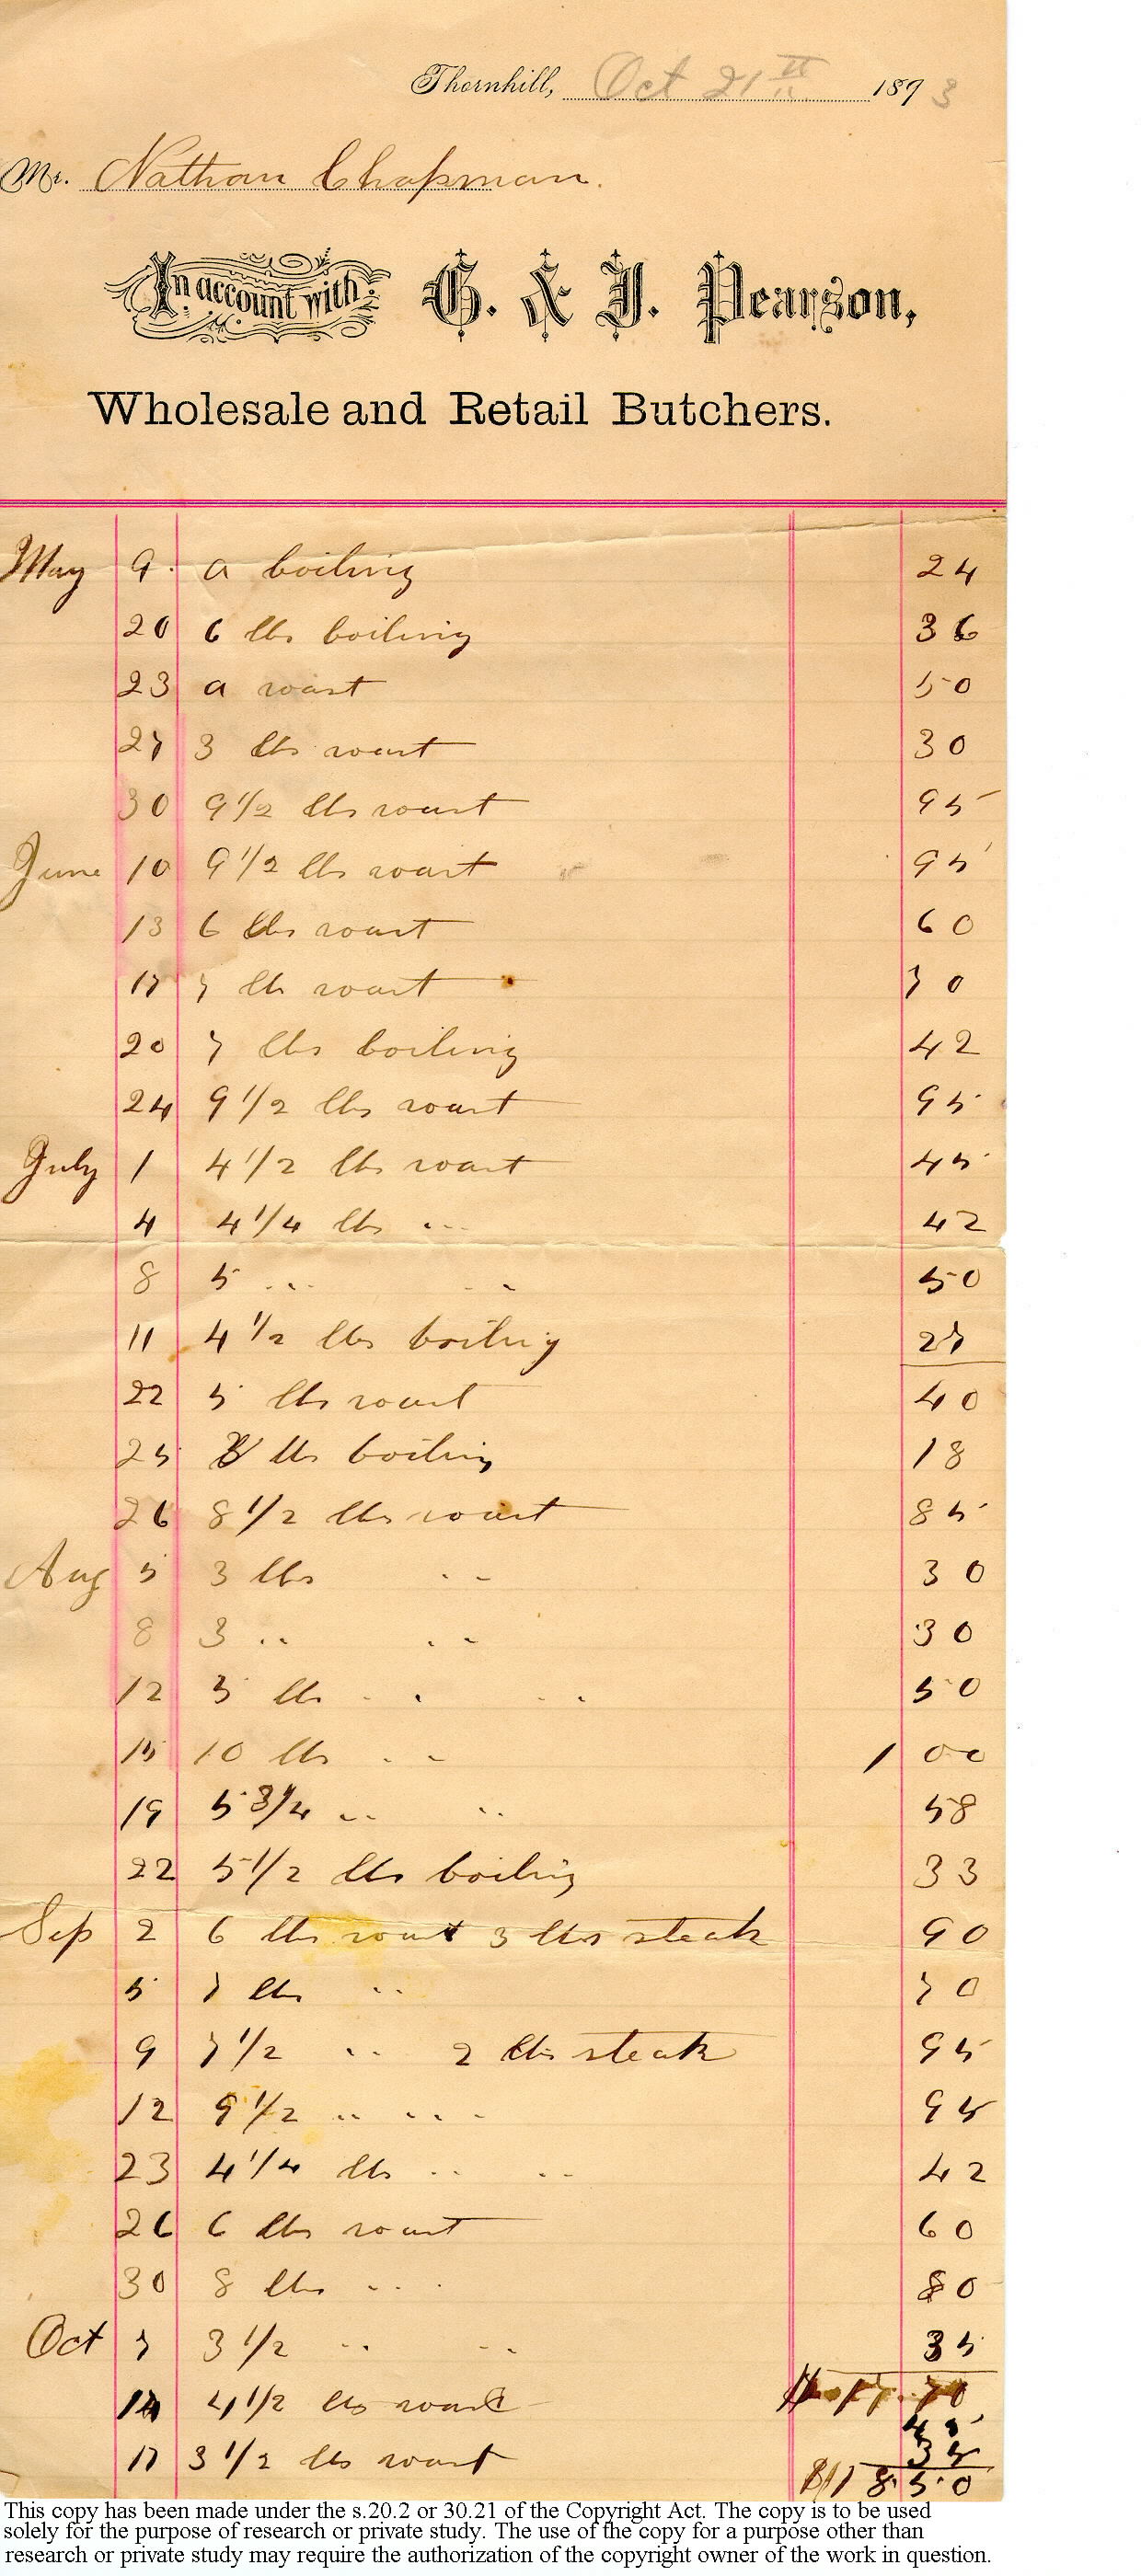 Thornhill, Oct 21st 1893
Mr. Nathan Chapman.
In account with G. & J. Pearson,
Wholesale and Retail Butchers.
May 9. a boiling 24
20 6 lbs boiling 36
23 a roast 50
27 3 lbs roast 30
30 9 1/2 lbs roast 95
June 10 9 1/2 lbs roast 95
13 6 lbs roast 60
17 7 lb roast 70
20 7 lbs boiling 42
24 9 1/2 lbs roast 95
July 1 4 1/2 lbs roast 45
4 4 1/4 lbs " 42
8 5 " " 50
11 4 1/2 lbs boiling 27
22 5 lbs roast 40
25 3 lbs boiling 18
26 8 1/2 lbs roast 85
Aug 5 3 lbs " 30
8 3 " " 30
12 5 lbs " " 50
15 10 lbs " 1 00
19 5 3/4 " " 58
22 5 1/2 lbs boiling 33
Sep 2 6 lbs roast 3 lbs steak 90
5 7 lbs " 70
9 7 1/2 " 2 lbs steak 95
12 9 1/2 " " 95
23 4 1/4 lbs " " 42
26 6 lbs roast 60
30 8 lbs " 80
Oct 7 3 1/2 " " 35
70
14 4 1/2 lbs roast 45
17 3 1/2 lbs roast 35
18.50
This copy has been made under the s.20.2 or 30.21 of the Copyright Act. The copy is to be used
solely for the purpose of research or private study. The use of the copy for a purpose other than
research or private study may require the authorization of the copyright owner of the work in question.